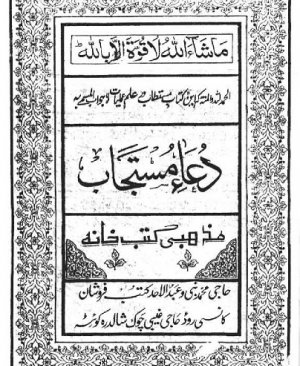 ماشاء الله لا قوة الا بالله
الحمد للہ والمنۃ کہ ایں کتاب مستطاب در علم عملیات لاجواب المسمے بہ
دُعاء مستجاب
مذهبی کتب خانه
حاجی محمد نبی و عبد الاحد کتب فروشان
کانسی روڈ حاجی غیبی چوک شالدره کوئٹہ